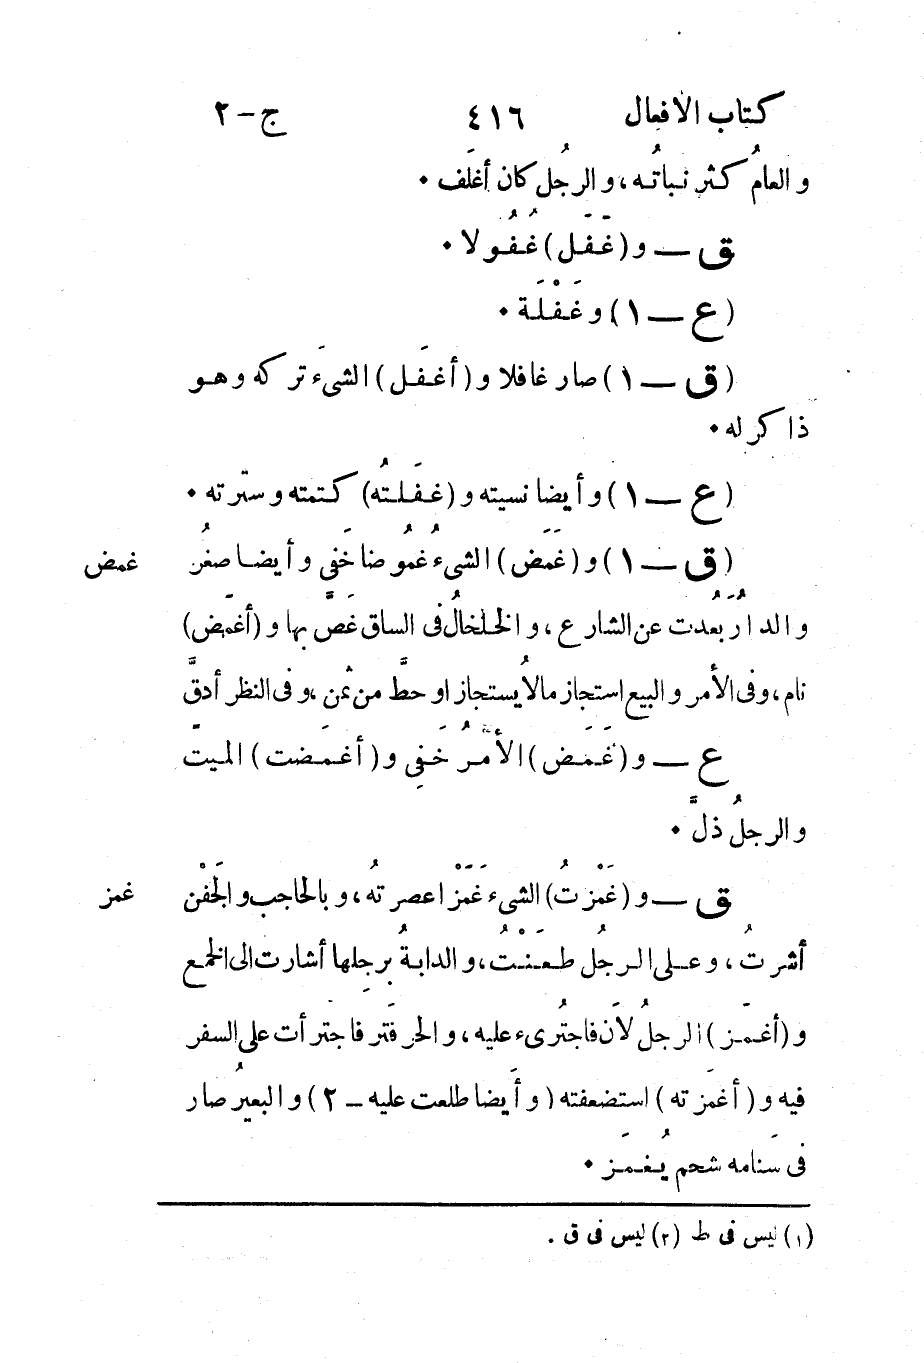 كتاب الأفعال ٤١٦ ج - ٢
والعامُ كثر نباتُه، والرجُل كان أغلَف •
ق — و (غَفَل) غُفُولا •
(ع — ١) وغَفْلَة •
(ق — ١) صار غافلا و (أغفَل) الشىَء تركه وهو
ذاكر له •
(ع — ١) وأيضا نسيته و (غفَلتُه) كتمته وسترته •
(ق — ١) و (غمَض) الشىءُ غمُوضا خَفى وأيضا صغُر غمض
والدارُ بعُدت عن الشارع، والخلخالُ فى الساق غَصَّ بها و (أغمَض)
نام، وفى الأمر والبيع استجاز مالا يُستجاز او حطَّ من ثمن، وفى النظر أدقَّ
ع — و (غَمَض) الأمرُ خَفى و (أغمَضت) الميتَ
والرجلُ ذلَّ •
ق — و (غَمْزتُ) الشىء غَمْزَا عصرتُه، وبالحاجب والجَفْن غمز
أشرتُ، وعلى الرجُل طعَنْتُ، والدابةُ برِجلها أشارت الى الخمع
و (أغمَز) الرجلُ لاَن فاجتُرىء عليه، والحر فتر فاجترأت على السفر
فيه و (أغمَزته) استضعفته (وأيضا طلعت عليه — ٢) والبعيرُ صار
فى سَنامه شحم يُغمَز •
(١) ليس فى ط (٢) ليس فى ق .